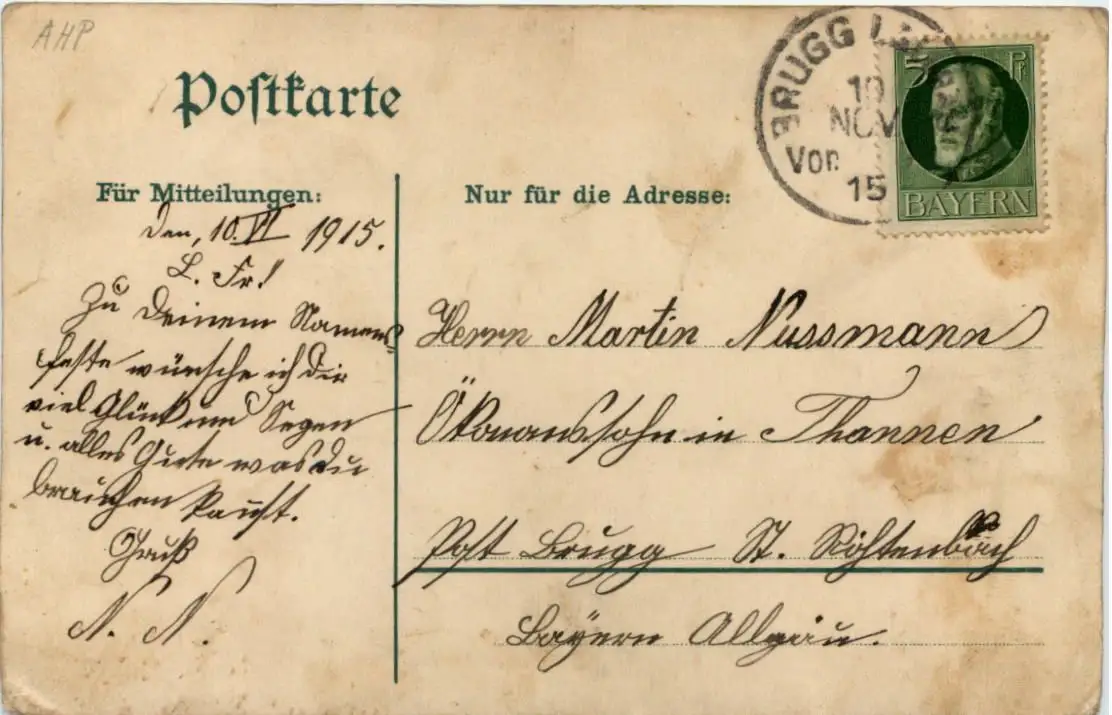 AHP
Postkarte
BRUGG
10
NOV
Vor
15
5 Pf
BAYERN
Für Mitteilungen:
Den, 10. VI 1915.
L. Fr.!
Zu Deinem Namens-
feste wünsche ich dir
viel Glück und Segen
u. alles Gute was du
brauchen kanst.
Gruß
N. N.
Nur für die Adresse:
Herrn Martin Nussmann
Ökonomssohn in Thannen
Post Brugg St. Röthenbach
Bayern Allgäu.